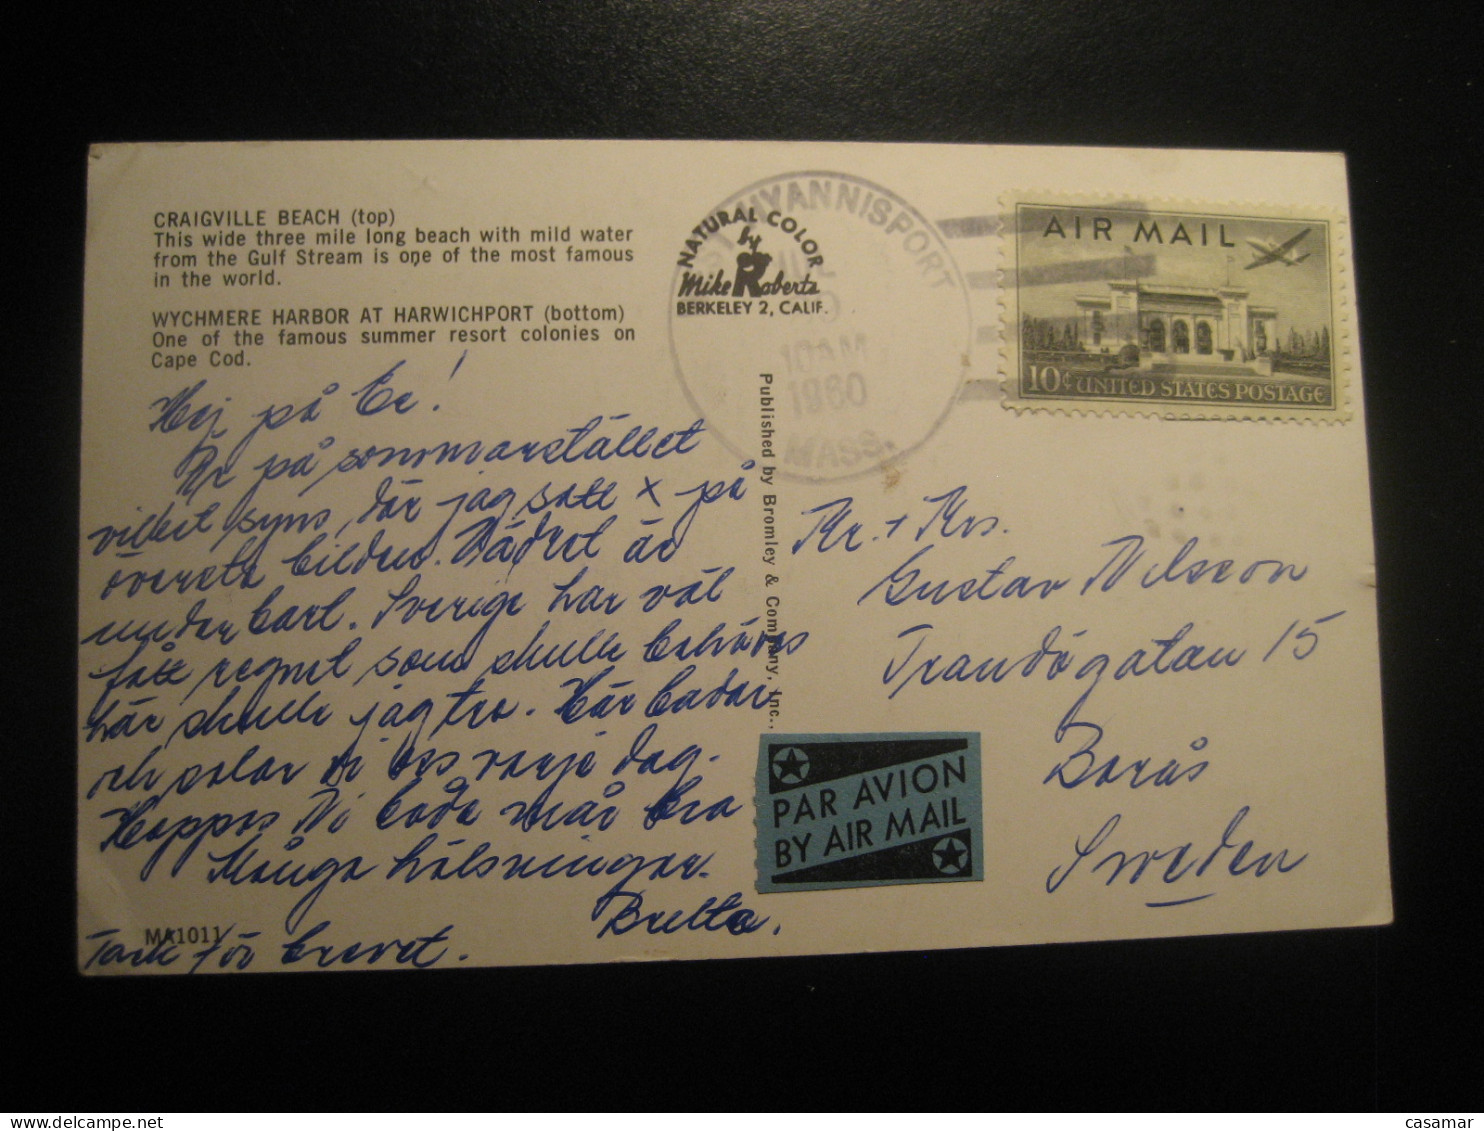 CRAIGVILLE BEACH (top)
This wide three mile long beach with mild water
from the Gulf Stream is one of the most famous
in the world.
WYCHMERE HARBOR AT HARWICHPORT (bottom)
One of the famous summer resort colonies on
Cape Cod.
Hej på Er!
Är på sommarstället
vilket syns, där jag satt x på
översta bilden. Vädret är
underbart. Sverige har väl
fått regnet som skulle behövas
här skulle jag tro. Här badar
och solar vi oss varje dag.
Hoppas Ni båda mår bra
Många hälsningar.
Britta.
Tack för brevet.
MA1011
NATURAL COLOR
by
Mike Roberts
BERKELEY 2, CALIF.
Published by Bromley & Company, Inc.,
HYANNISPORT
10 AM
1960
MASS.
AIR MAIL
10¢ UNITED STATES POSTAGE
Mr. + Mrs.
Gustav Nilsson
Trandögatan 15
Borås
Sweden
PAR AVION
BY AIR MAIL
www.delcampe.net
casamar